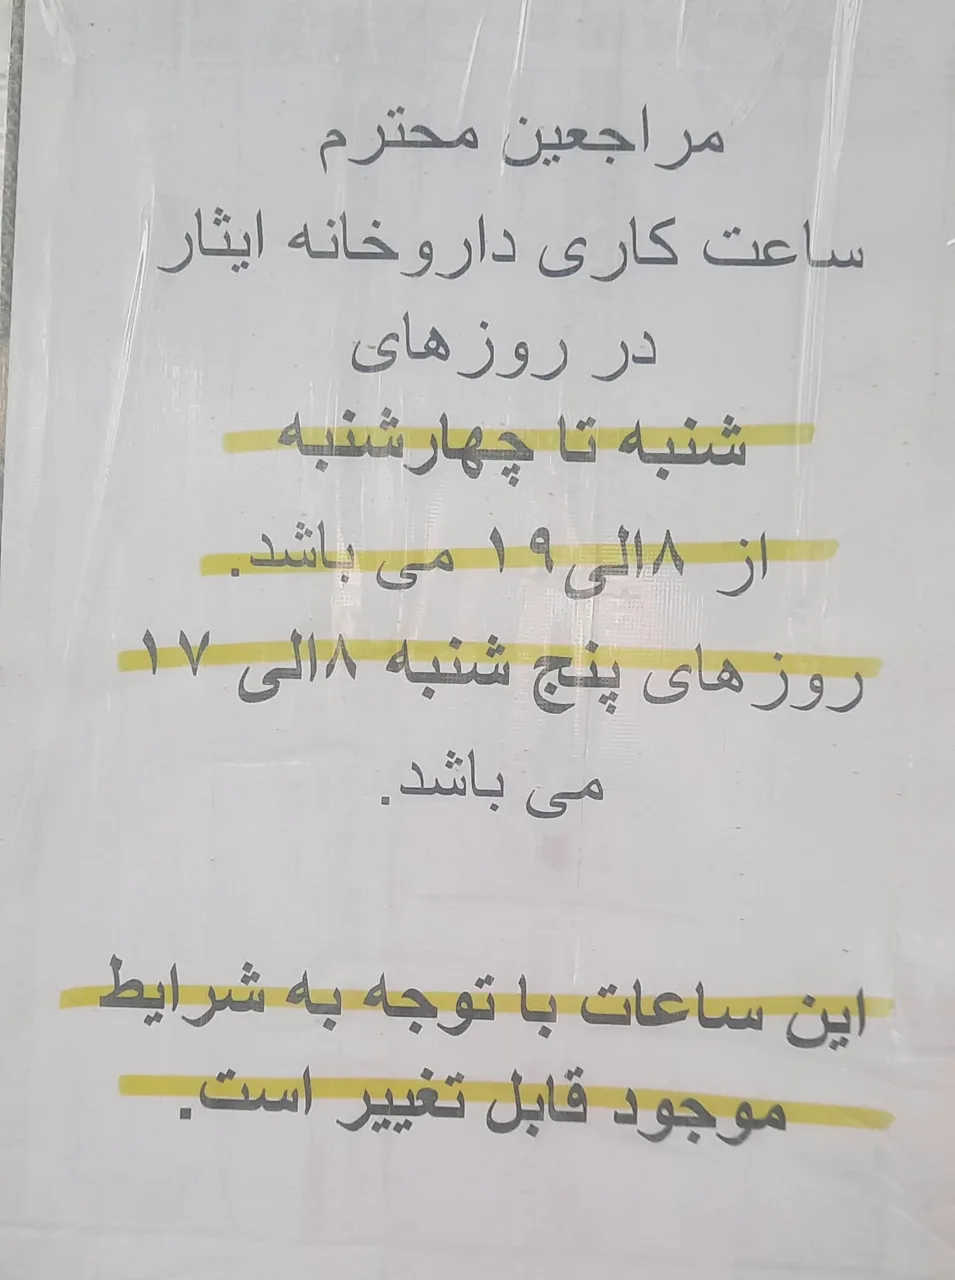 مراجعین محترم
ساعت کاری داروخانه ایثار
در روزهای
شنبه تا چهارشنبه
از ۸الی۱۹ می باشد.
روزهای پنج شنبه ۸الی ۱۷
می باشد.
این ساعات با توجه به شرایط
موجود قابل تغییر است.